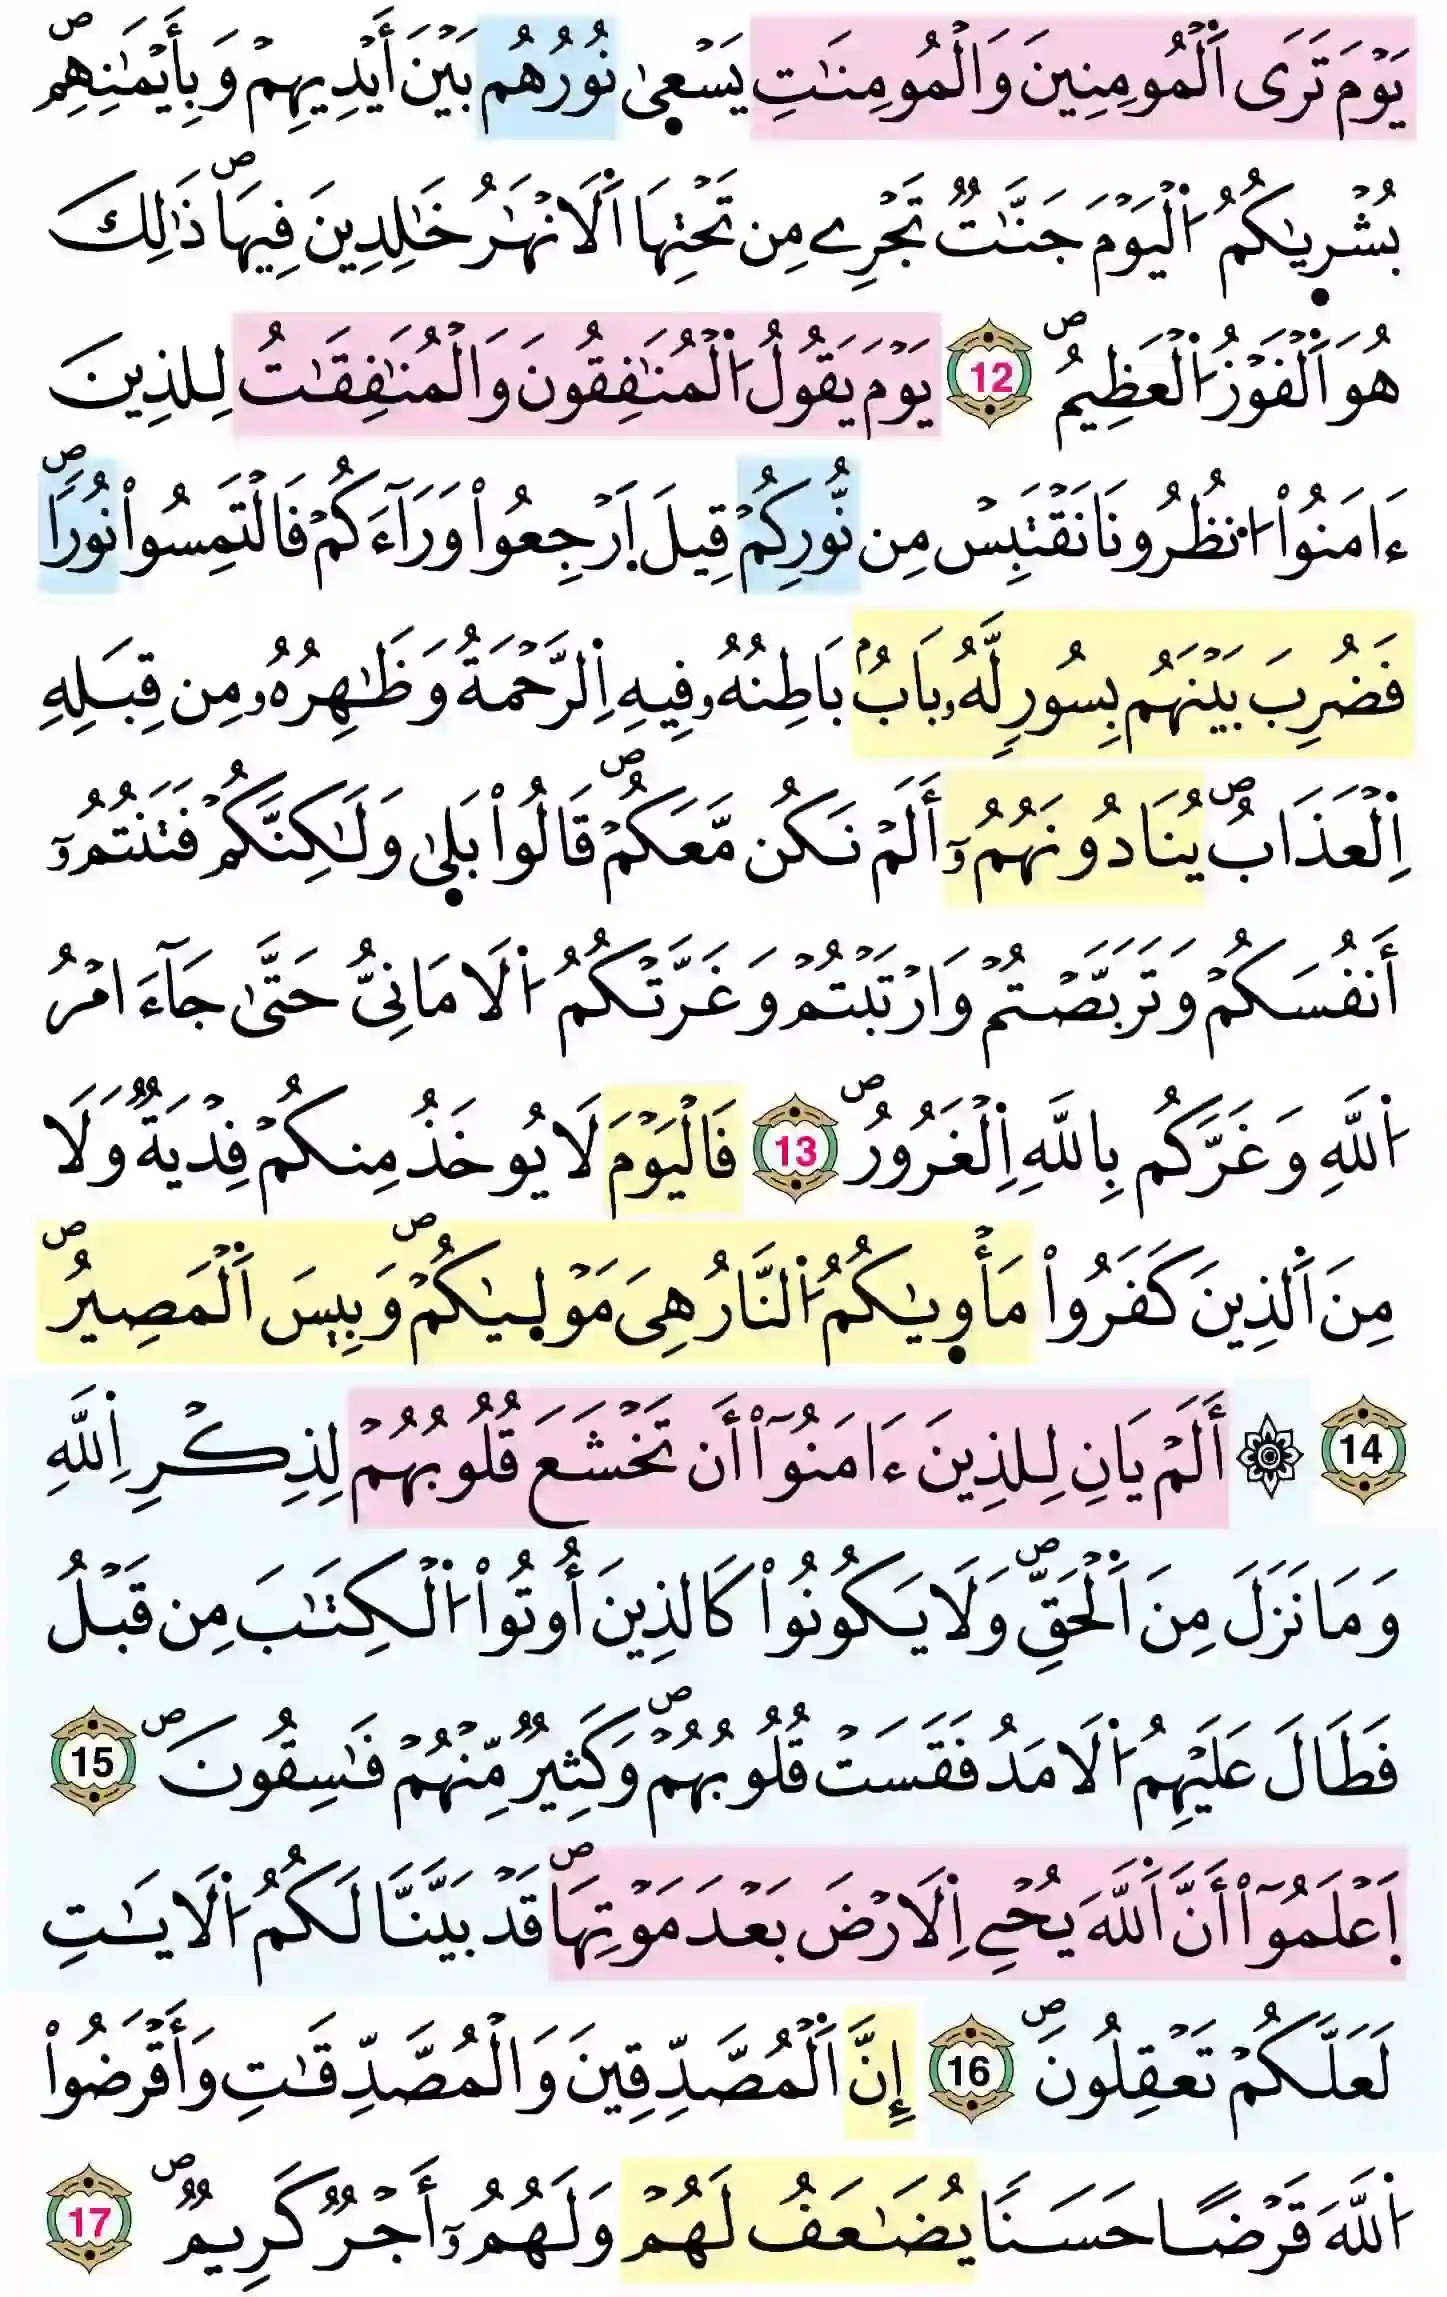 يَوْمَ تَرَى اَ۬لْمُومِنِينَ وَالْمُومِنَٰتِ يَسْع۪يٰ نُورُهُم بَيْنَ أَيْدِيهِمْ وَبِأَيْمَٰنِهِمۖ
بُشْر۪يٰكُمُ اُ۬لْيَوْمَ جَنَّٰتٞ تَجْرِے مِن تَحْتِهَا اَ۬لَانْهَٰرُ خَٰلِدِينَ فِيهَاۖ ذَٰلِكَ
هُوَ اَ۬لْفَوْزُ اُ۬لْعَظِيمُۖ 12 يَوْمَ يَقُولُ اُ۬لْمُنَٰفِقُونَ وَالْمُنَٰفِقَٰتُ لِلذِينَ
ءَامَنُواْ اُ۟نظُرُونَا نَقْتَبِسْ مِن نُّورِكُمْ قِيلَ اَ۪رْجِعُواْ وَرَآءَكُمْ فَالْتَمِسُواْ نُوراٗۖ
فَضُرِبَ بَيْنَهُم بِسُورٖ لَّهُۥ بَابُۢ بَاطِنُهُۥ فِيهِ اِ۬لرَّحْمَةُ وَظَٰهِرُهُۥ مِن قِبَلِهِ
اِ۬لْعَذَابُۖ يُنَادُونَهُمُۥٓ أَلَمْ نَكُن مَّعَكُمْۖ قَالُواْ بَل۪يٰ وَلَٰكِنَّكُمْ فَتَنتُمُۥٓ
أَنفُسَكُمْ وَتَرَبَّصْتُمْ وَارْتَبْتُمْ وَغَرَّتْكُمُ اُ۬لَامَانِيُّ حَتَّىٰ جَآءَ امْرُ
اُ۬للَّهِ وَغَرَّكُم بِاللَّهِ اِ۬لْغَرُورُۖ 13 فَالْيَوْمَ لَا يُوخَذُ مِنكُمْ فِدْيَةٞ وَلَا
مِنَ اَ۬لذِينَ كَفَرُواْ مَأْو۪يٰكُمُ اُ۬لنَّارُ هِيَ مَوْل۪يٰكُمْۖ وَبِيسَ اَ۬لْمَصِيرُۖ
14 ۞ أَلَمْ يَانِ لِلذِينَ ءَامَنُوٓاْ أَن تَخْشَعَ قُلُوبُهُمْ لِذِكْرِ اِ۬للَّهِ
وَمَا نَزَلَ مِنَ اَ۬لْحَقِّۖ وَلَا يَكُونُواْ كَالذِينَ أُوتُواْ اُ۬لْكِتَٰبَ مِن قَبْلُ
فَطَالَ عَلَيْهِمُ اُ۬لَامَدُ فَقَسَتْ قُلُوبُهُمْۖ وَكَثِيرٞ مِّنْهُمْ فَٰسِقُونَۖ 15
اَ۪عْلَمُوٓاْ أَنَّ اَ۬للَّهَ يُحْيِ اِ۬لَارْضَ بَعْدَ مَوْتِهَاۖ قَدْ بَيَّنَّا لَكُمُ اُ۬لَايَٰتِ
لَعَلَّكُمْ تَعْقِلُونَۖ 16 إِنَّ اَ۬لْمُصَّدِّقِينَ وَالْمُصَّدِّقَٰتِ وَأَقْرَضُواْ
اُ۬للَّهَ قَرْضاً حَسَناٗ يُضَٰعَفُ لَهُمْ وَلَهُمُۥٓ أَجْرٞ كَرِيمٞۖ 17